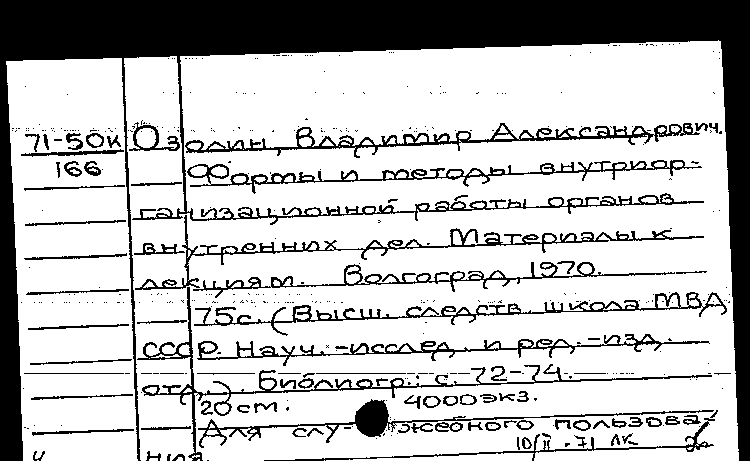 71-50к Озолин, Владимир Александрович.
166 Формы и методы внутриор-
ганизационной работы органов
внутренних дел. Материалы к
лекциям. Волгоград, 1970.
75с. (Высш. следств. школа МВД
СССР. Науч.-исслед. и ред.-изд.
отд.). Библиогр.: с. 72-74.
20 см. 4000 экз.
Для служебного пользова-
10/II-71 ЛК
ния.